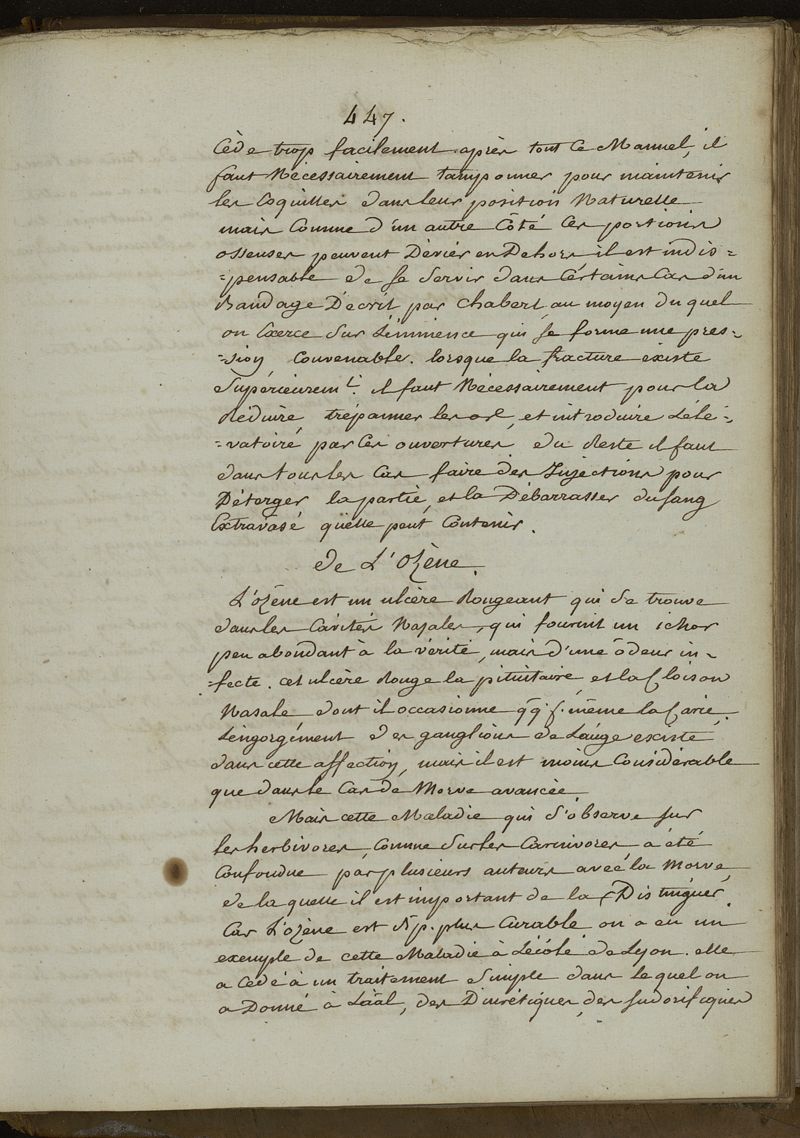 447.
Cède trop facilement après tout ce Manuel, il
faut Nécessairement tamponner pour maintenir
les Coquilles dans leur position Naturelle
mais Comme d'un autre Côté Ces portions
osseuses peuvent Dévier en Dehors il est indis-=
=-pensable de se Servir dans Certains Cas d'un
Bandage Décrit par Chabert au moyen du quel
on Exerce Sur L'éminence qui se forme une pres-=
=-sion Convenable. lorsque la fracture existe
Supérieurem.t il faut Nécessairement pour la
Réduire, trépanner les os, et introduire L'élé-=
=-vatoire par Ces ouvertures, du Reste il faut
dans tous les Cas faire des Injections pour
Déterger la partie, et la Débarrasser du sang
Extravasé qüelle peut Contenir.
De L'Ozène.
L'ozène est un ulcère Rongeant qui se trouve
dans les Cavités Nasales, qui fournit un ichor
peu abondant à la vérité, mais d'une ôdeur in-
-fecte. cet ulcère Ronge la pituitaire, et la Cloison
Nasale dont il occasionne qq.f. même la Carie.
L'engorgement des ganglions de L'auge existe
dans cette affection, mais il est moins Considérable
que dans le Cas de Morve avancée.
Mais cette Maladie qui s'observe sur
les herbivores, Comme Sur les Carnivores a été
Confondue par plusieurs auteurs avec la Morve,
de la quelle il est important de la Distinguer.
Car L'ozène est plus Curable on a eu un
exemple de cette Maladie à L'école de Lyon. elle
a Cédé à un traitement Simple dans le quel on
a Donné à L'aãl, des Diurétiques, des sudorifiques